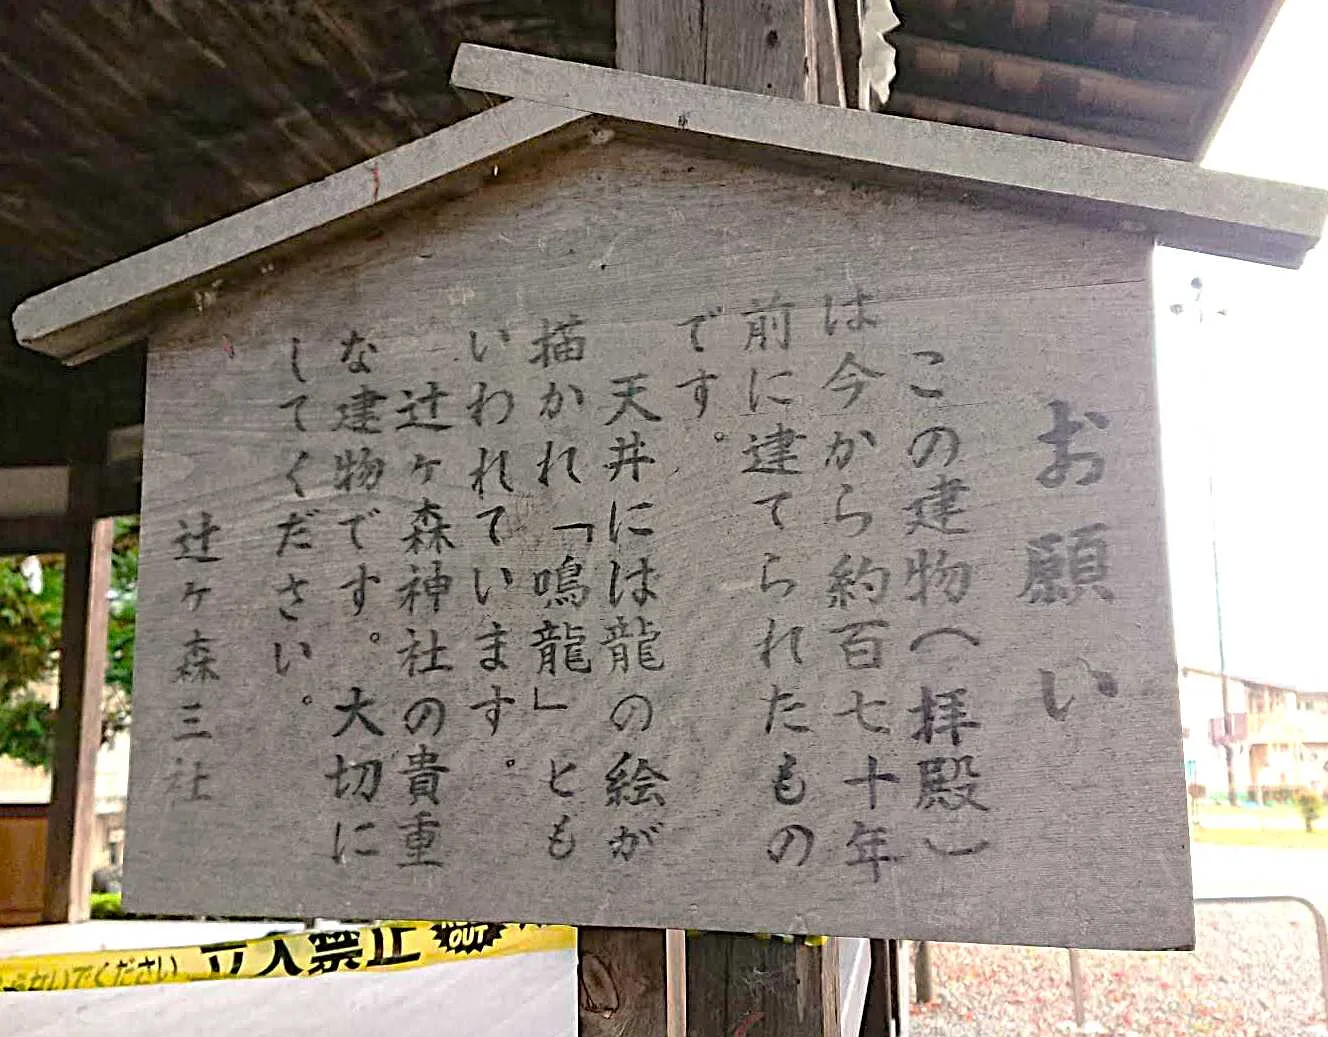 お願い
この建物(拝殿)
は今から約百七十年
前に建てられたもの
です。
天井には龍の絵が
描かれ「鳴龍」とも
いわれています。
辻ヶ森神社の貴重
な建物です。大切に
してください。
辻ヶ森三社
いでください 立入禁止
OUT